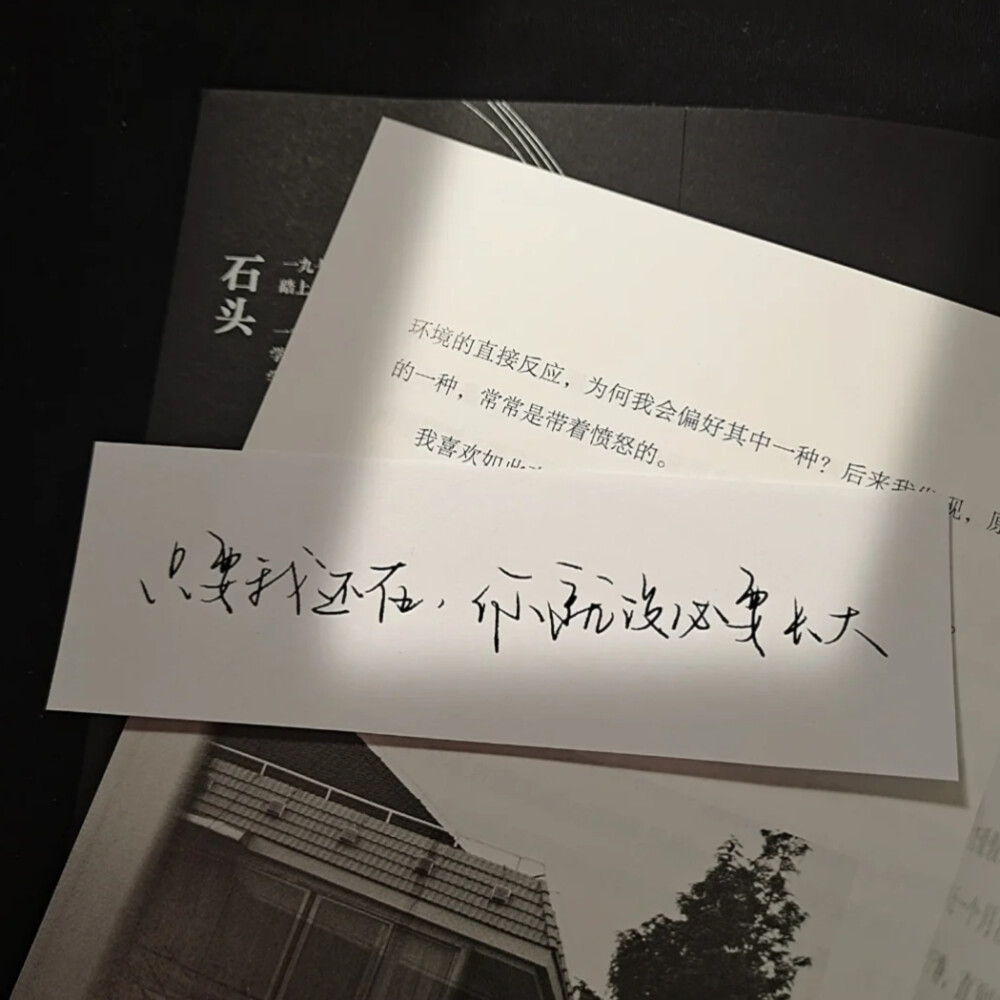 石头
一九
路上
环境的直接反应，为何我会偏好其中一种？后来我 现，原
的一种，常常是带着愤怒的。
我喜欢如此
只要我还在，你就没必要长大
一个月